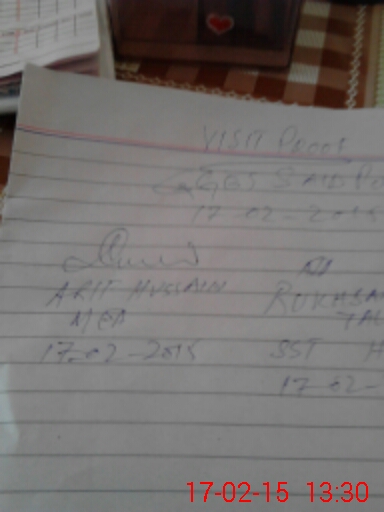 VISIT PROOF
GGS SAID PO
17-02-2015
ARIF HUSSAIN
MEA
17-02-2015
RUKHSA
SST H
17-02-
17-02-15 13:30